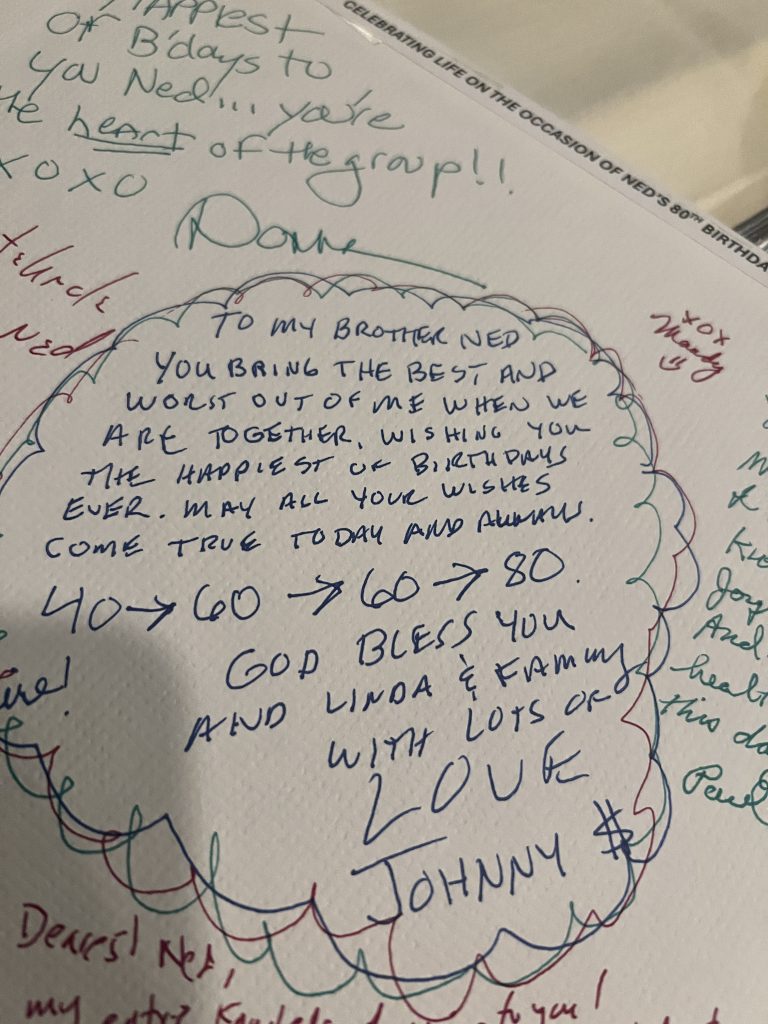 CELEBRATING LIFE ON THE OCCASION OF NED'S 80TH BIRTHDA
HAPPIEST
OF B'days to
you Ned... you're
the heart of the group!!
XOXO
Donna
Ned
XOX
Mandy
TO MY BROTHER NED
YOU BRING THE BEST AND
WORST OUT OF ME WHEN WE
ARE TOGETHER. WISHING YOU
THE HAPPIEST OF BIRTHDAYS
EVER. MAY ALL YOUR WISHES
COME TRUE TODAY AND ALWAYS.
40→60→60→80.
GOD BLESS YOU
AND LINDA & FAMILY
WITH LOTS OF
LOVE
JOHNNY $
And
healt
this da
Paul
Dearest Ned,
my to you!